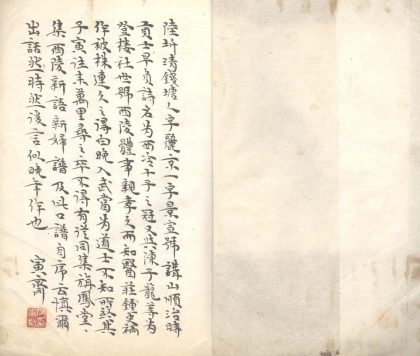 陸圻清錢塘人字麗京一字景宣號講山順治時
貢士早負詩名為西泠十子之冠又與陳子龍等為
登樓社世號西陵體事親孝久而知醫莊鍾史禍
作被株連久之得白晚入武當為道士不知所終其
子寅往來萬里尋之卒不得有從同集旗鳳堂
集西陵新語新婦譜及此口譜自序云慎爾
出話然時然後言似晚年作也 寅齋